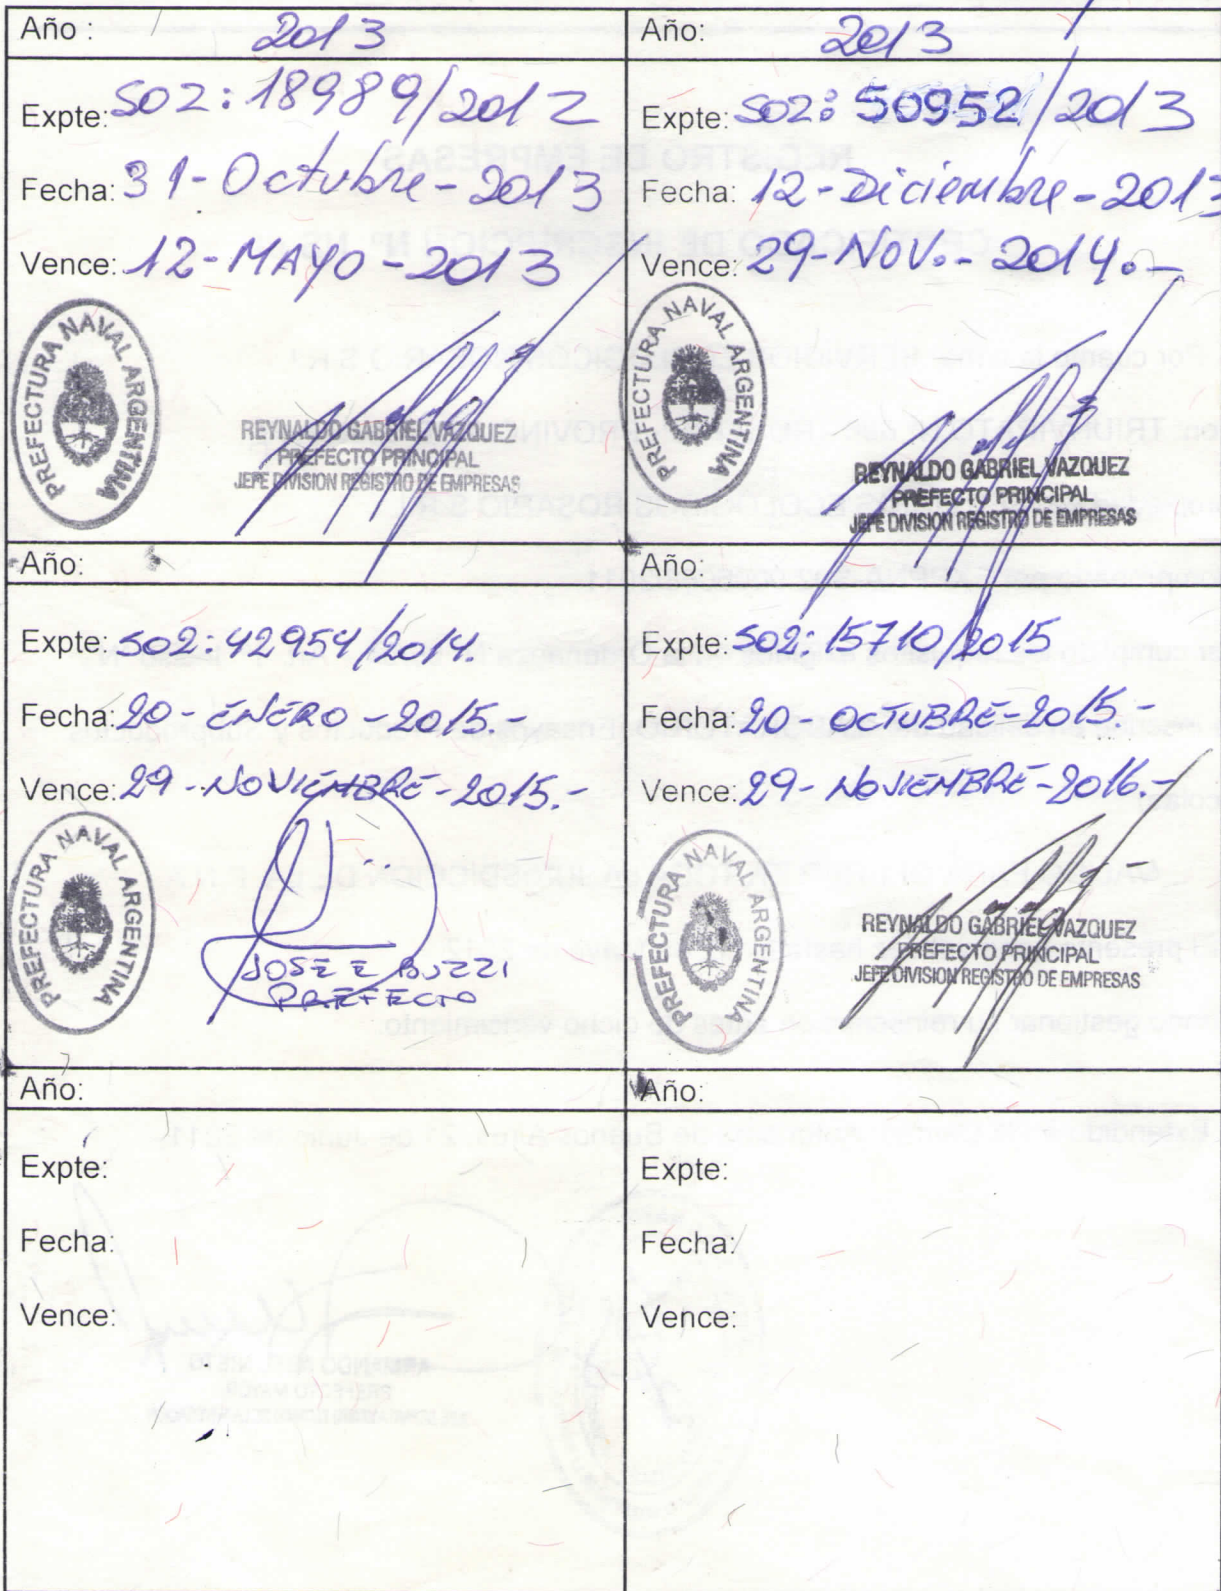 Año : 2013
Expte: S02: 18989/2012
Fecha: 31-Octubre-2013
Vence: 12-MAYO-2013
PREFECTURA NAVAL ARGENTINA
REYNALDO GABRIEL VAZQUEZ
PREFECTO PRINCIPAL
JEFE DIVISION REGISTRO DE EMPRESAS
Año: 2013
Expte: S02: 50952/2013
Fecha: 12-Diciembre-2013
Vence: 29-NOV.-2014.-
PREFECTURA NAVAL ARGENTINA
REYNALDO GABRIEL VAZQUEZ
PREFECTO PRINCIPAL
JEFE DIVISION REGISTRO DE EMPRESAS
Año:
Expte: S02: 42954/2014.
Fecha: 20-ENERO-2015.-
Vence: 29-NOVIEMBRE-2015.-
PREFECTURA NAVAL ARGENTINA
JOSE E BUZZI
PREFECTO
Año:
Expte: S02: 15710/2015
Fecha: 20-OCTUBRE-2015.-
Vence: 29-NOVIEMBRE-2016.-
PREFECTURA NAVAL ARGENTINA
REYNALDO GABRIEL VAZQUEZ
PREFECTO PRINCIPAL
JEFE DIVISION REGISTRO DE EMPRESAS
Año:
Expte:
Fecha:
Vence:
Año:
Expte:
Fecha:
Vence: